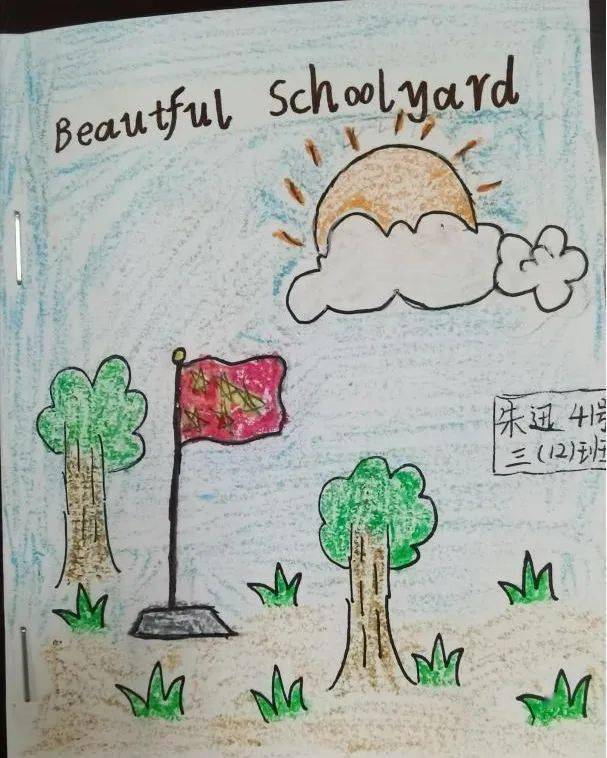 Beautiful Schoolyard
朱迅 41号
三(12)班